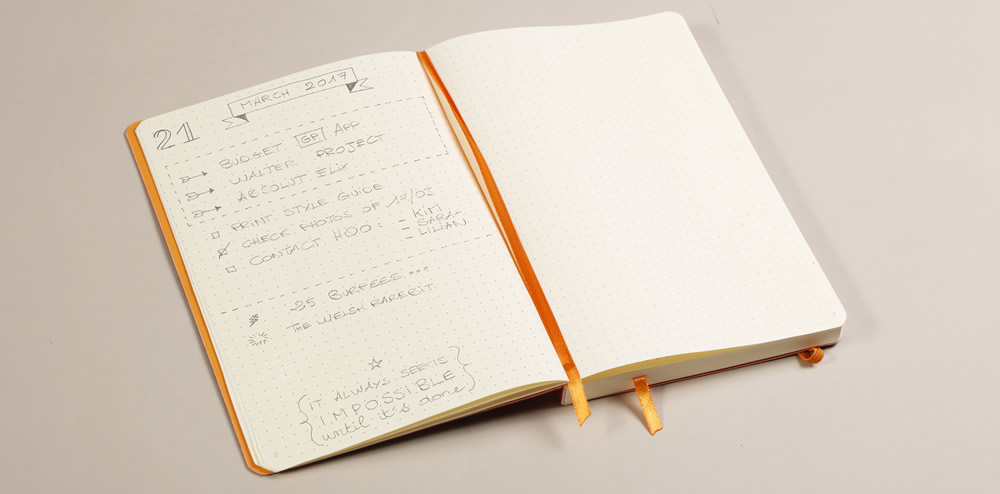 MARCH 2017
21
BUDGET GP APP
WALTER PROJECT
ABSOLUT ELIX
PRINT STYLE GUIDE
CHECK PHOTOS OF 17/03
CONTACT HQO: - KIM
- SARA
- LILIAN
25 BURPEES...
THE WELSH RAREBIT
IT ALWAYS SEEMS
IMPOSSIBLE
until it's done